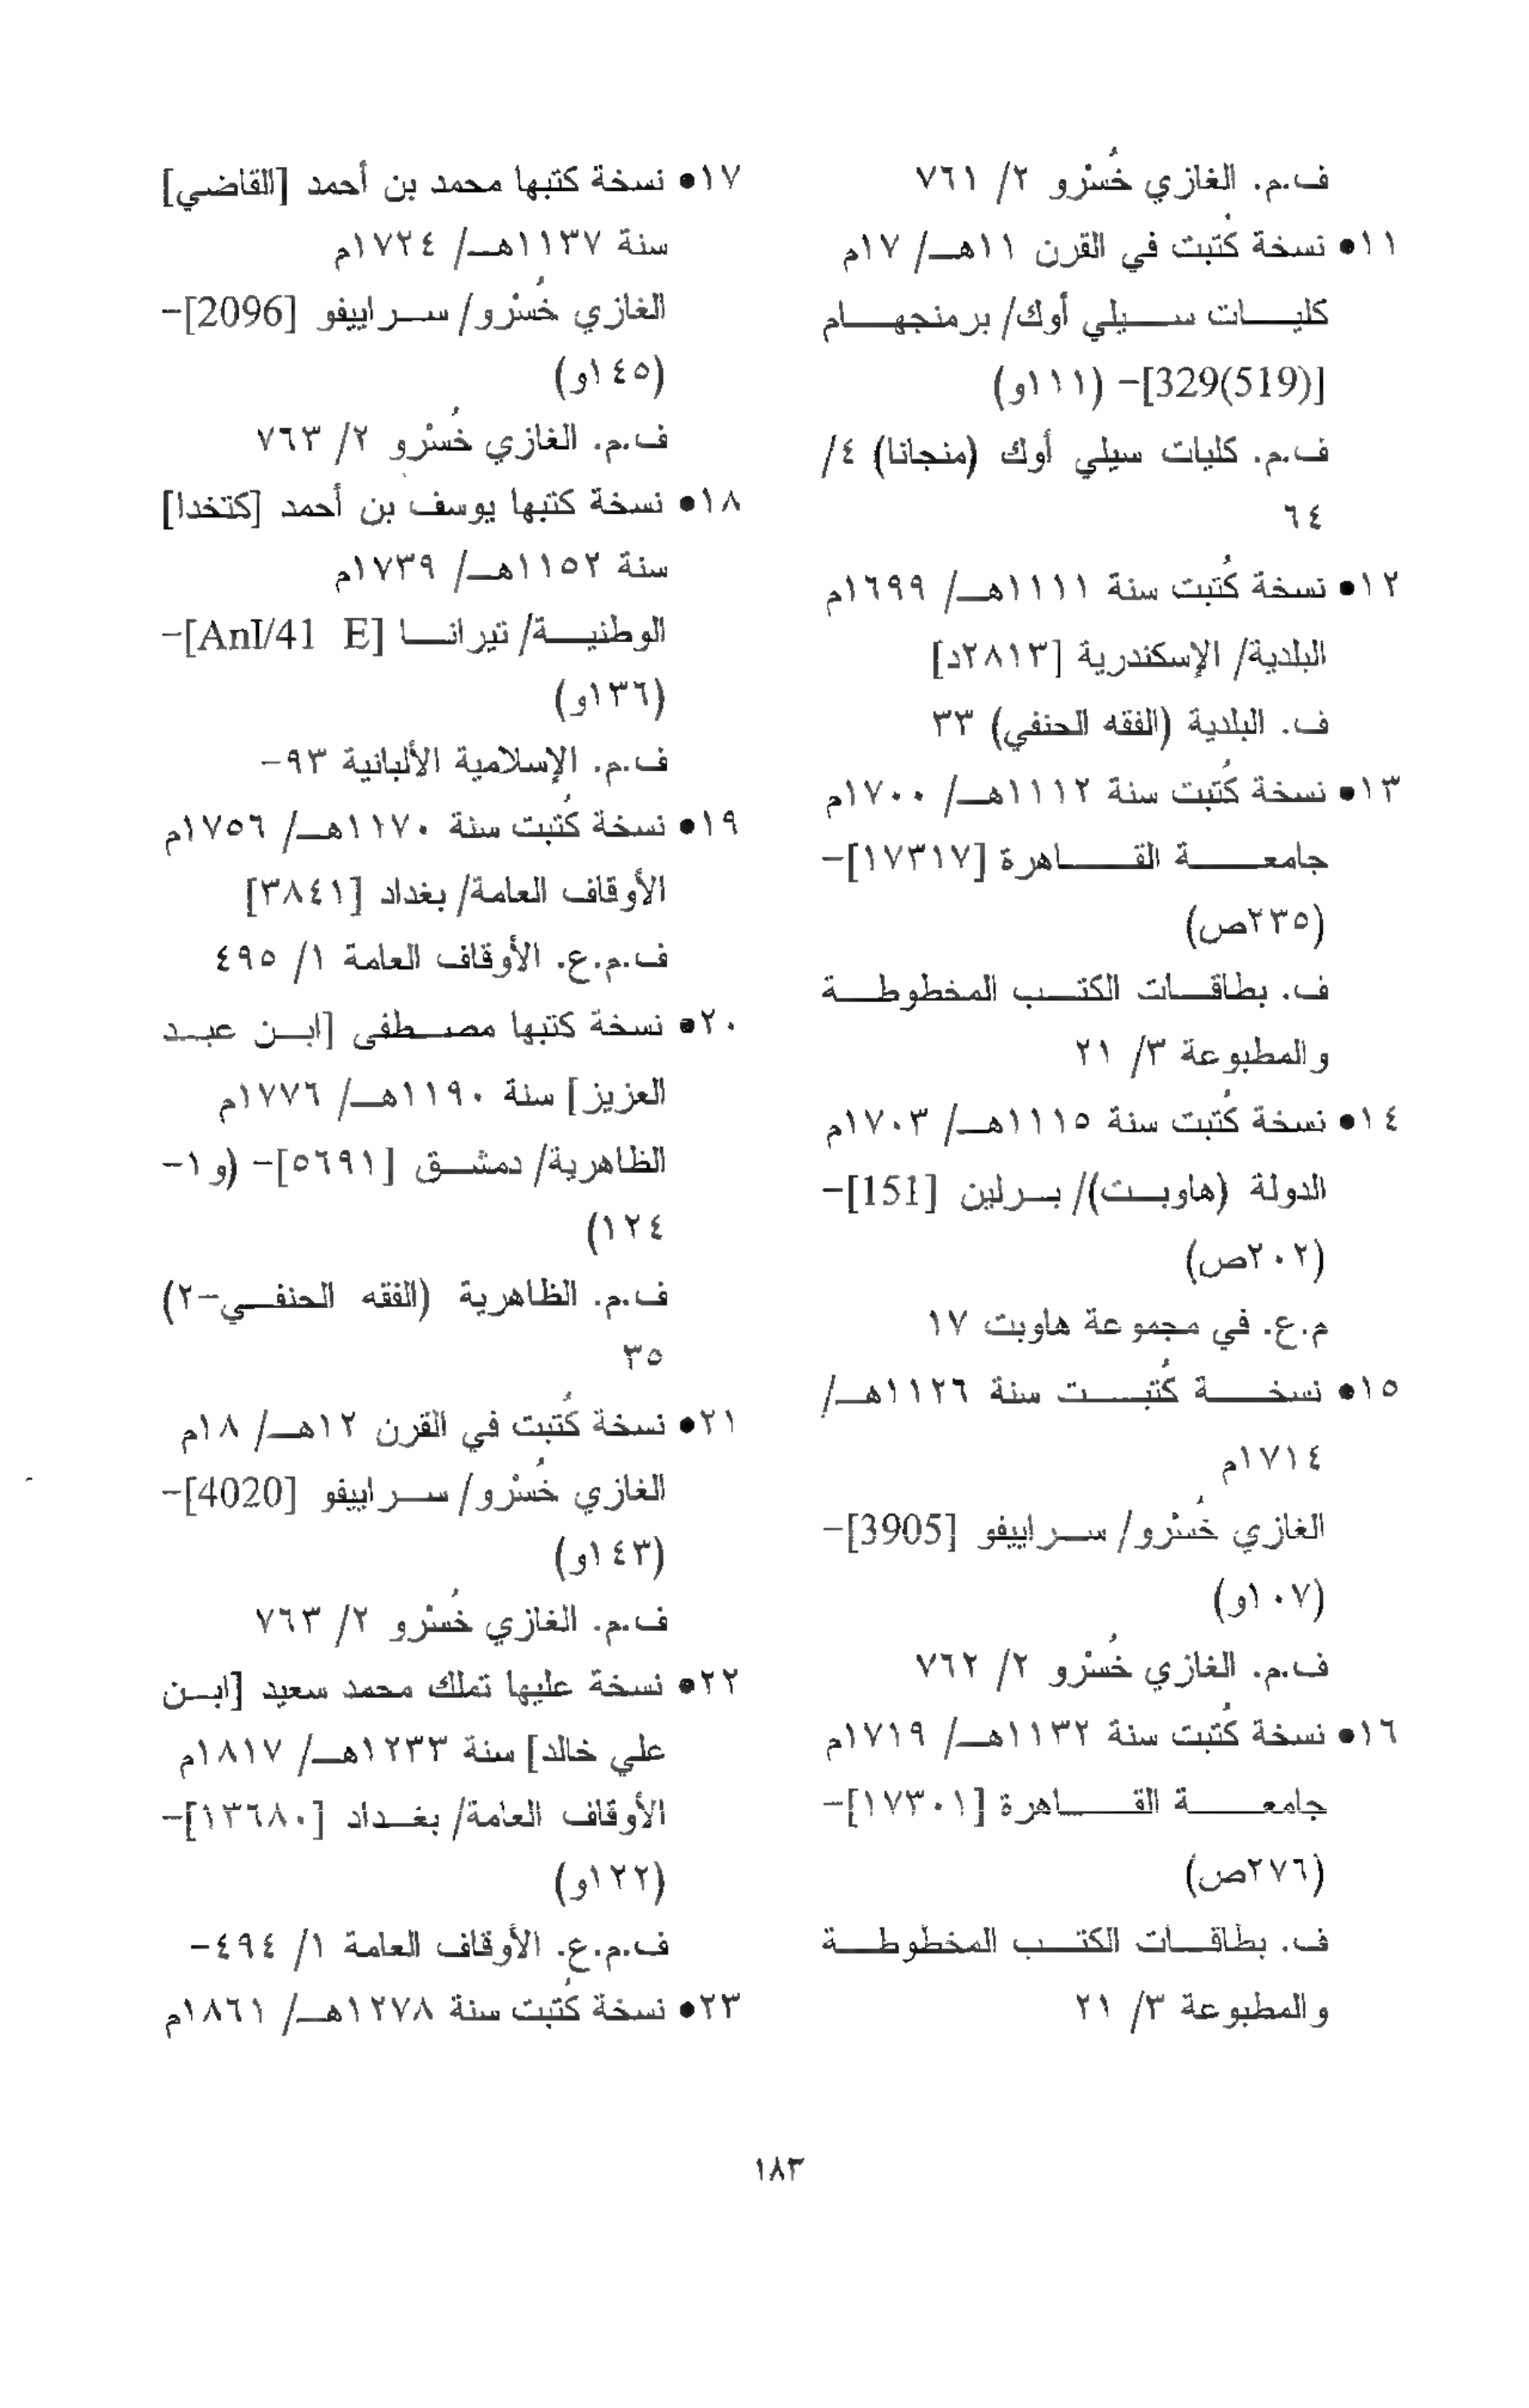 ف.م. الغازي خُسْرو ٢/ ٧٦١
١١• نسخة كُتبت في القرن ١١هـ/ ١٧م
كليات سيلي أوك/ برمنجهام
[329(519)]- (١١١و)
ف.م. كليات سيلي أوك (منجانا) ٤/
٦٤
١٢• نسخة كُتبت سنة ١١١١هـ/ ١٦٩٩م
البلدية/ الإسكندرية [٢٨١٣د]
ف. البلدية (الفقه الحنفي) ٣٣
١٣• نسخة كُتبت سنة ١١١٢هـ/ ١٧٠٠م
جامعة القاهرة [١٧٣١٧]-
(٢٣٥ص)
ف. بطاقات الكتب المخطوطة
والمطبوعة ٣/ ٢١
١٤• نسخة كُتبت سنة ١١١٥هـ/ ١٧٠٣م
الدولة (هاوبت)/ برلين [151]-
(٢٠٢ص)
م.ع. في مجموعة هاوبت ١٧
١٥• نسخة كُتبت سنة ١١٢٦هـ/
١٧١٤م
الغازي خُسْرو/ سراييفو [3905]-
(١٠٧و)
ف.م. الغازي خُسْرو ٢/ ٧٦٢
١٦• نسخة كُتبت سنة ١١٣٢هـ/ ١٧١٩م
جامعة القاهرة [١٧٣٠١]-
(٢٧٦ص)
ف. بطاقات الكتب المخطوطة
والمطبوعة ٣/ ٢١
١٧• نسخة كتبها محمد بن أحمد [القاضي]
سنة ١١٣٧هـ/ ١٧٢٤م
الغازي خُسْرو/ سراييفو [2096]-
(١٤٥و)
ف.م. الغازي خُسْرو ٢/ ٧٦٣
١٨• نسخة كتبها يوسف بن أحمد [كتخدا]
سنة ١١٥٢هـ/ ١٧٣٩م
الوطنية/ تيرانا [AnI/41 E]-
(١٣٦و)
ف.م. الإسلامية الألبانية ٩٣-
١٩• نسخة كُتبت سنة ١١٧٠هـ/ ١٧٥٦م
الأوقاف العامة/ بغداد [٣٨٤١]
ف.م.ع. الأوقاف العامة ١/ ٤٩٥
٢٠• نسخة كتبها مصطفى [ابن عبد
العزيز] سنة ١١٩٠هـ/ ١٧٧٦م
الظاهرية/ دمشق [٥٦٩١]- (و١-
١٢٤)
ف.م. الظاهرية (الفقه الحنفي-٢)
٣٥
٢١• نسخة كُتبت في القرن ١٢هـ/ ١٨م
الغازي خُسْرو/ سراييفو [4020]-
(١٤٣و)
ف.م. الغازي خُسْرو ٢/ ٧٦٣
٢٢• نسخة عليها تملك محمد سعيد [ابن
علي خالد] سنة ١٢٣٣هـ/ ١٨١٧م
الأوقاف العامة/ بغداد [١٣٦٨٠]-
(١٢٢و)
ف.م.ع. الأوقاف العامة ١/ ٤٩٤-
٢٣• نسخة كُتبت سنة ١٢٧٨هـ/ ١٨٦١م
١٨٣